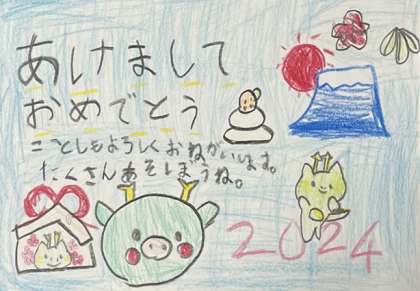 あけまして
おめでとう
ことしもよろしくおねがいします。
たくさんあそぼうね。
2024